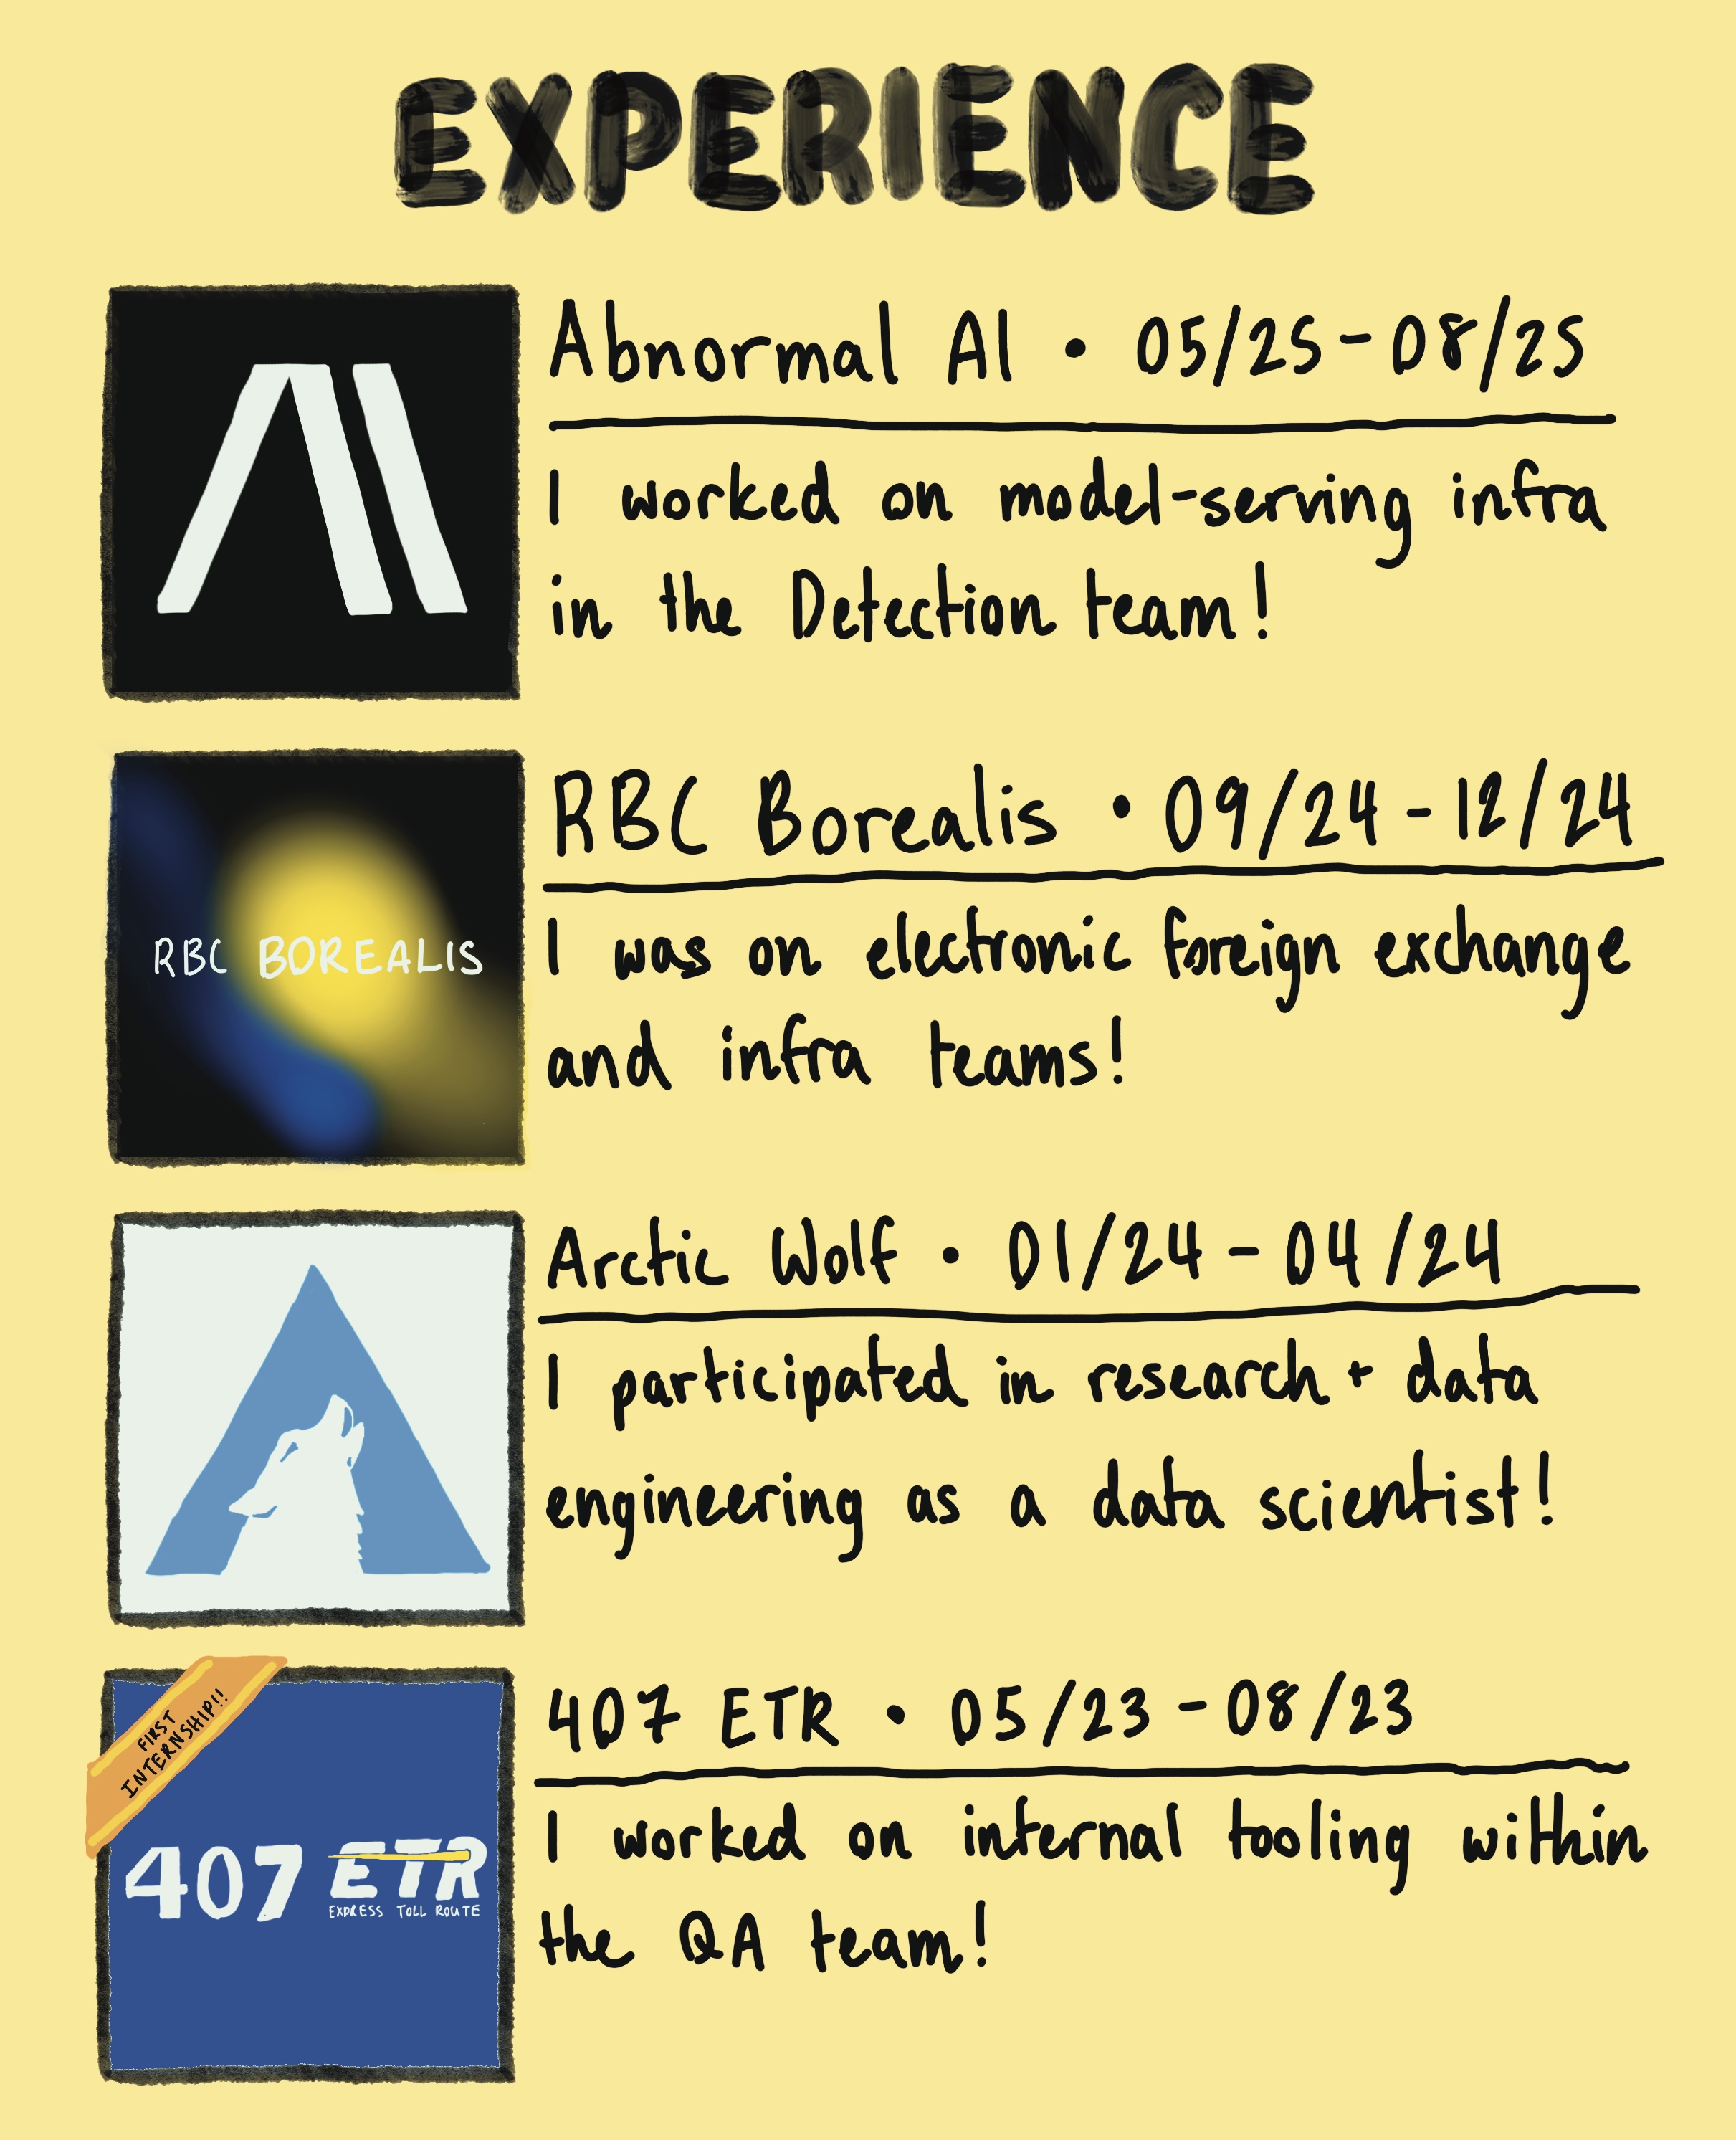 EXPERIENCE
Abnormal AI • 05/25 - 08/25
I worked on model-serving infra
in the Detection team!
RBC BOREALIS
RBC Borealis • 09/24 - 12/24
I was on electronic foreign exchange
and infra teams!
Arctic Wolf • 01/24 - 04/24
I participated in research + data
engineering as a data scientist!
FIRST
INTERNSHIP!!
407 ETR
EXPRESS TOLL ROUTE
407 ETR • 05/23 - 08/23
I worked on internal tooling within
the QA team!